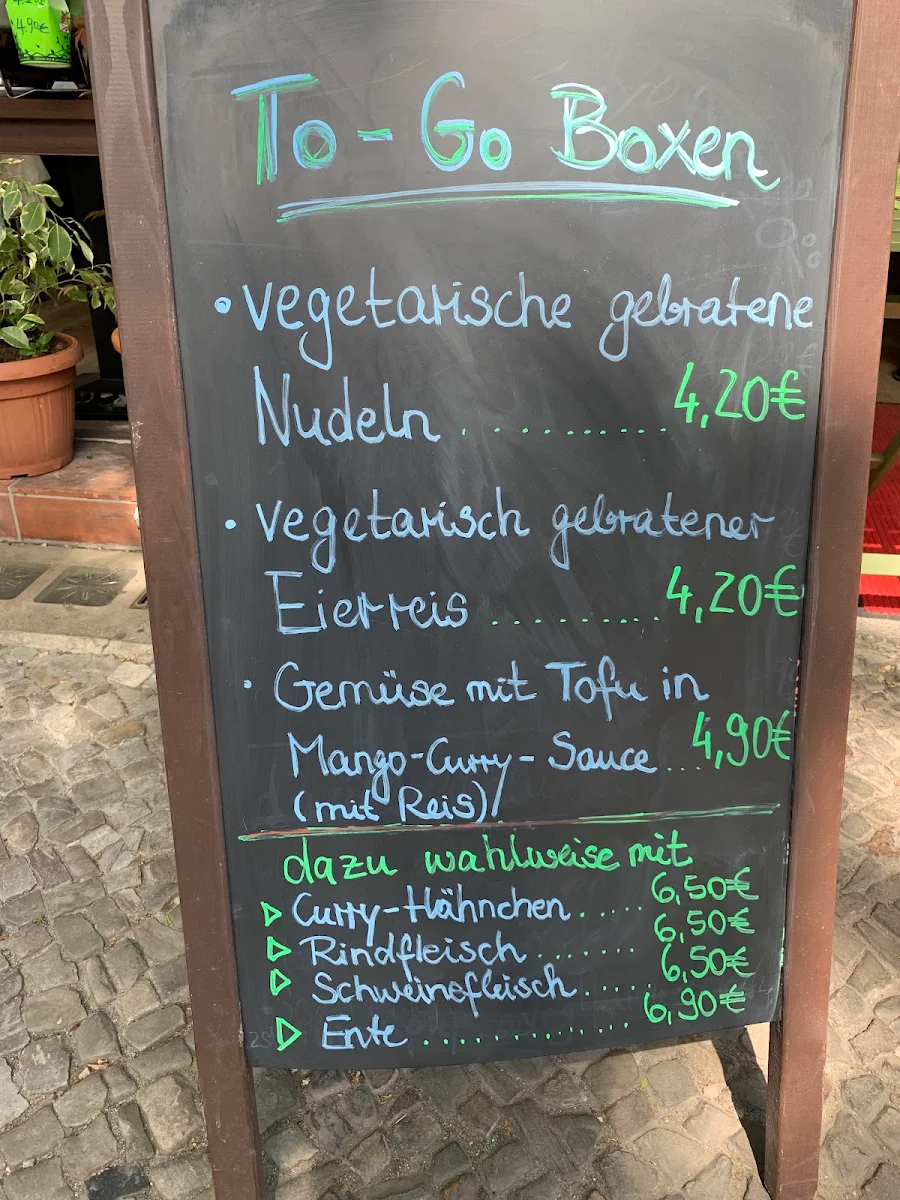 4,90€
To-Go Boxen
• vegetarische gebratene
Nudeln .......... 4,20€
• vegetarisch gebratener
Eierreis .......... 4,20€
• Gemüse mit Tofu in
Mango-Curry-Sauce ... 4,90€
(mit Reis)
dazu wahlweise mit
▷ Curry-Hähnchen ..... 6,50€
▷ Rindfleisch ........ 6,50€
▷ Schweinefleisch ..... 6,50€
▷ Ente ............ 6,90€